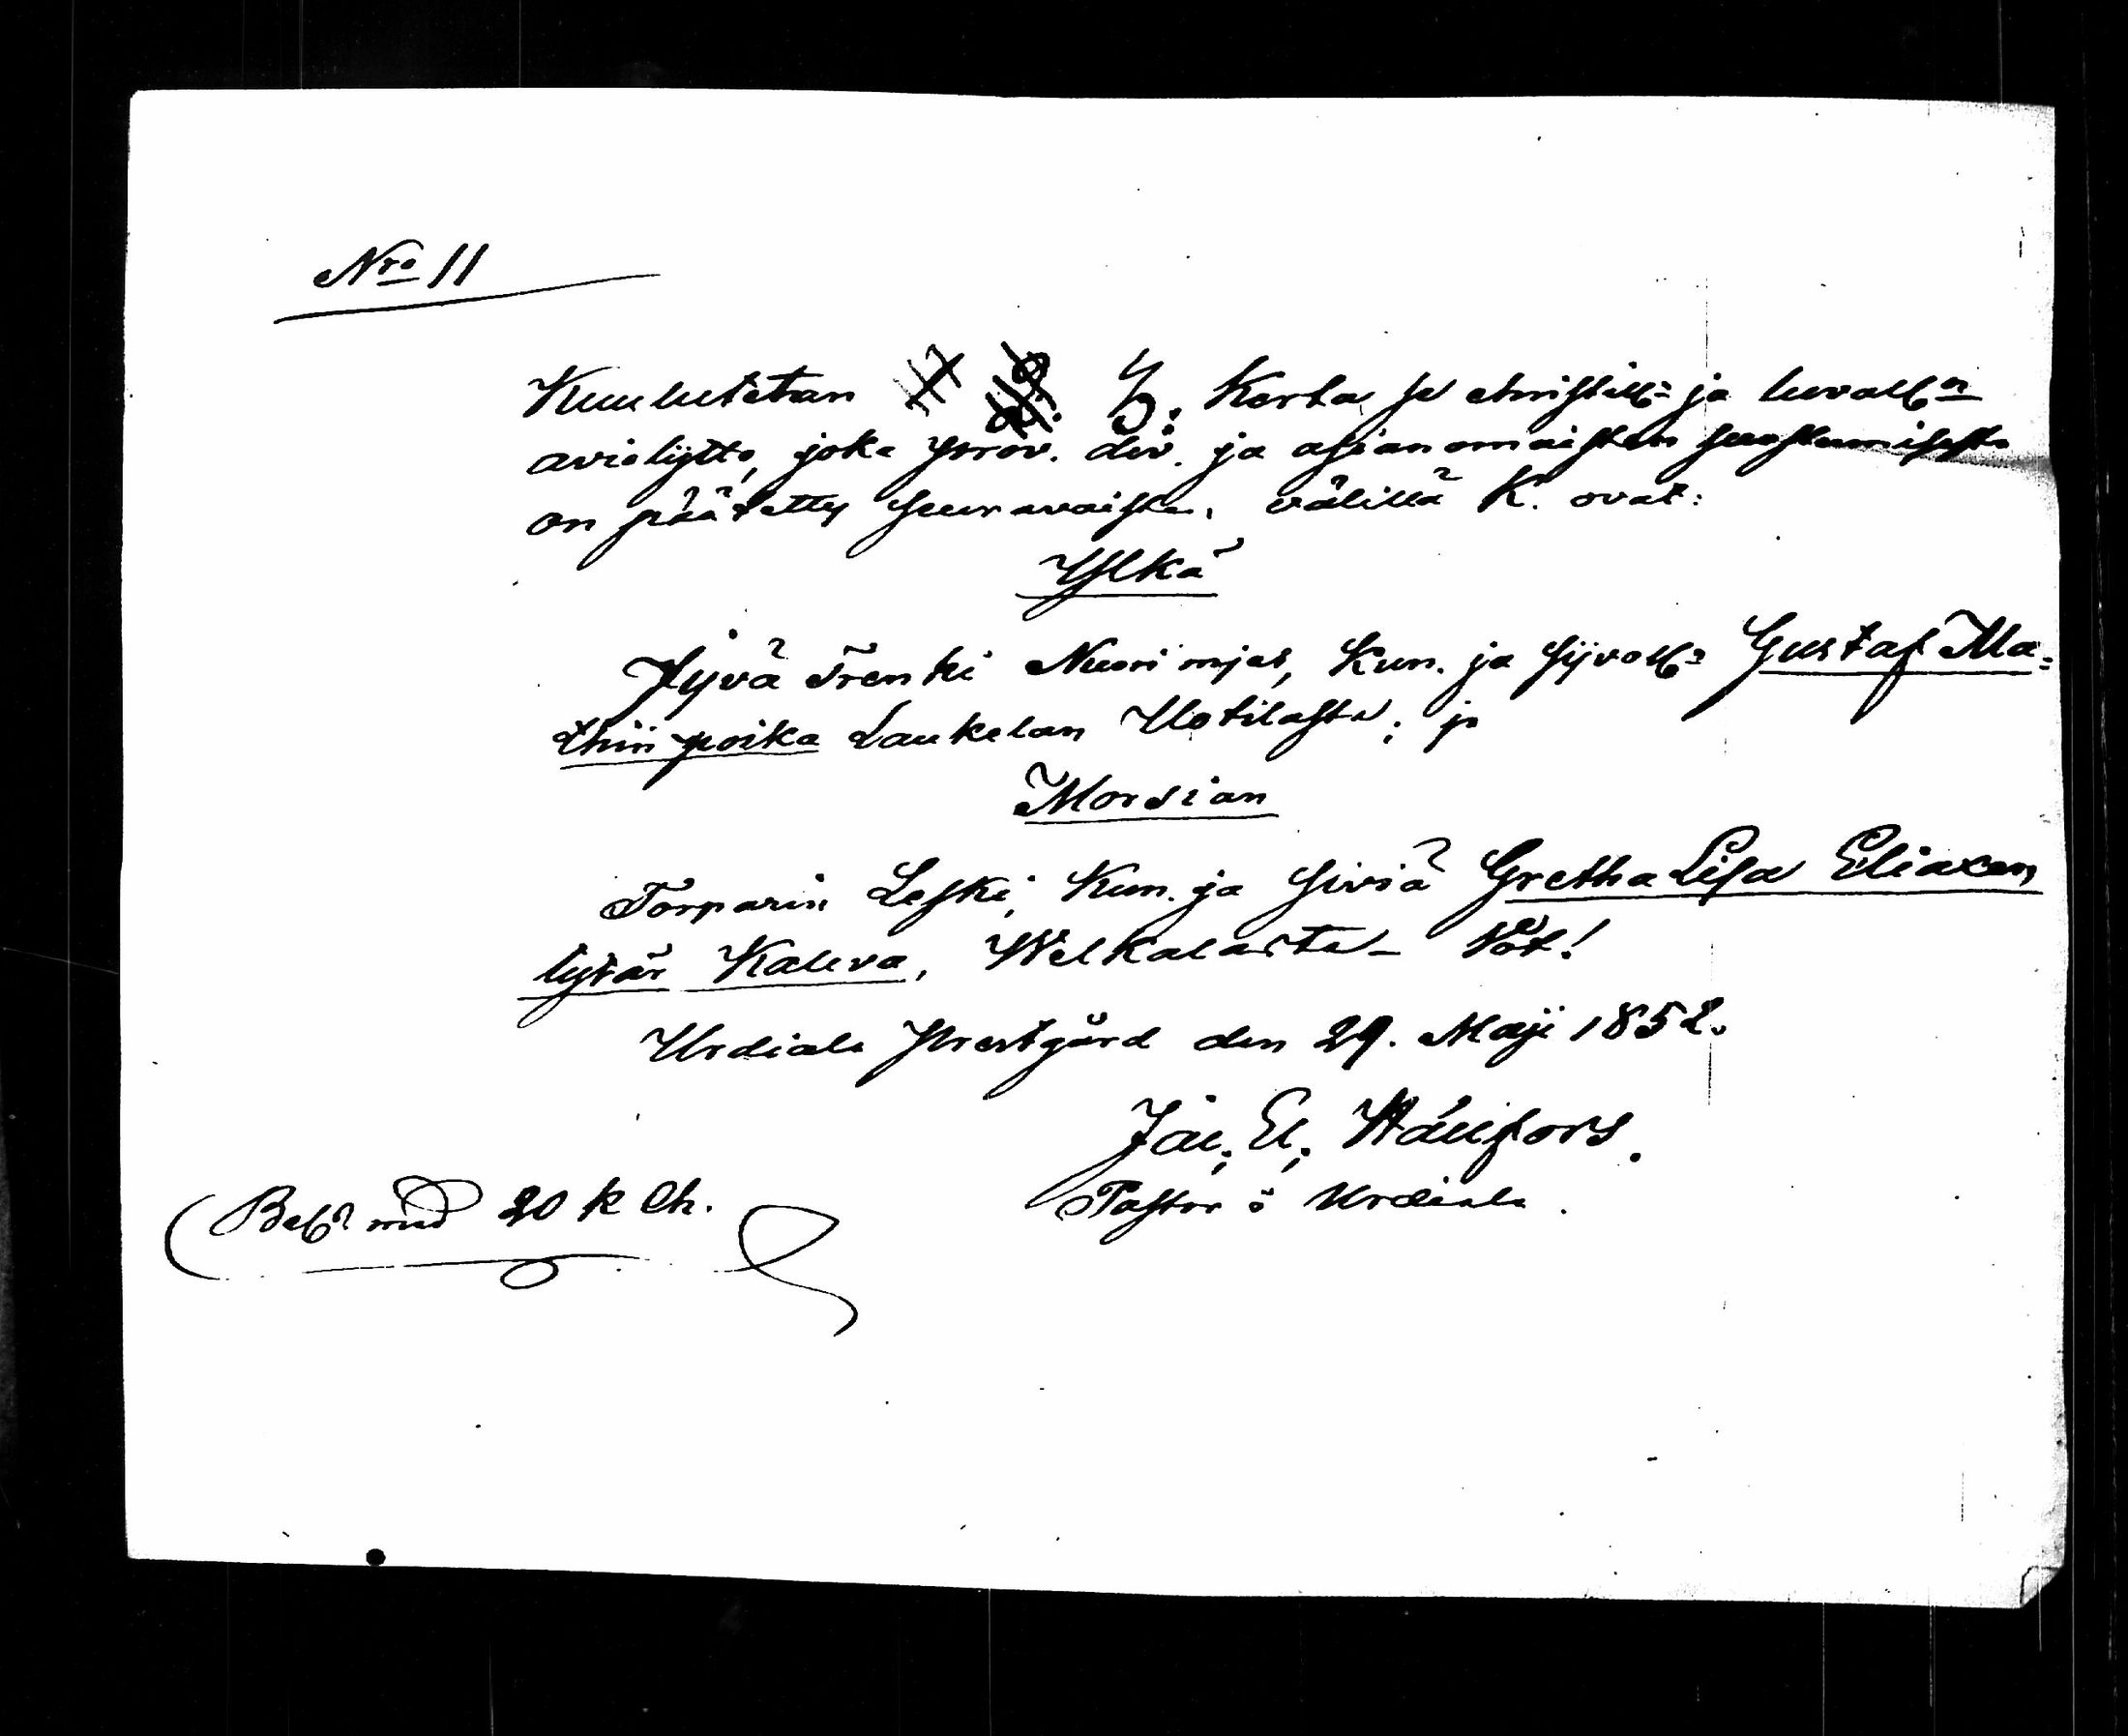 Nro 11
Kuulutetan 1 2. 3. Kerta se christill= ja luvall:n
avioliitto, joka prov. div. ja asianomaisten suostumisesta
on päätetty seuravaisten välillä K. ovat:
Ylkä
Hyvä Trenki Nuori mies, Kun. ja Syvoll: Gustaf Ma=
thiin poika Laukelan Uotilasta; ja
Morsian
Torparin Leski, Kun. ja Siviä Gretha Lisa Eliaxen
tytär Kaleva, Welkalasta
Urdiala Prestgård den 29. Maji 1852.
Joh. El.
Pastor i Urdiala.
Bet. med 20 k